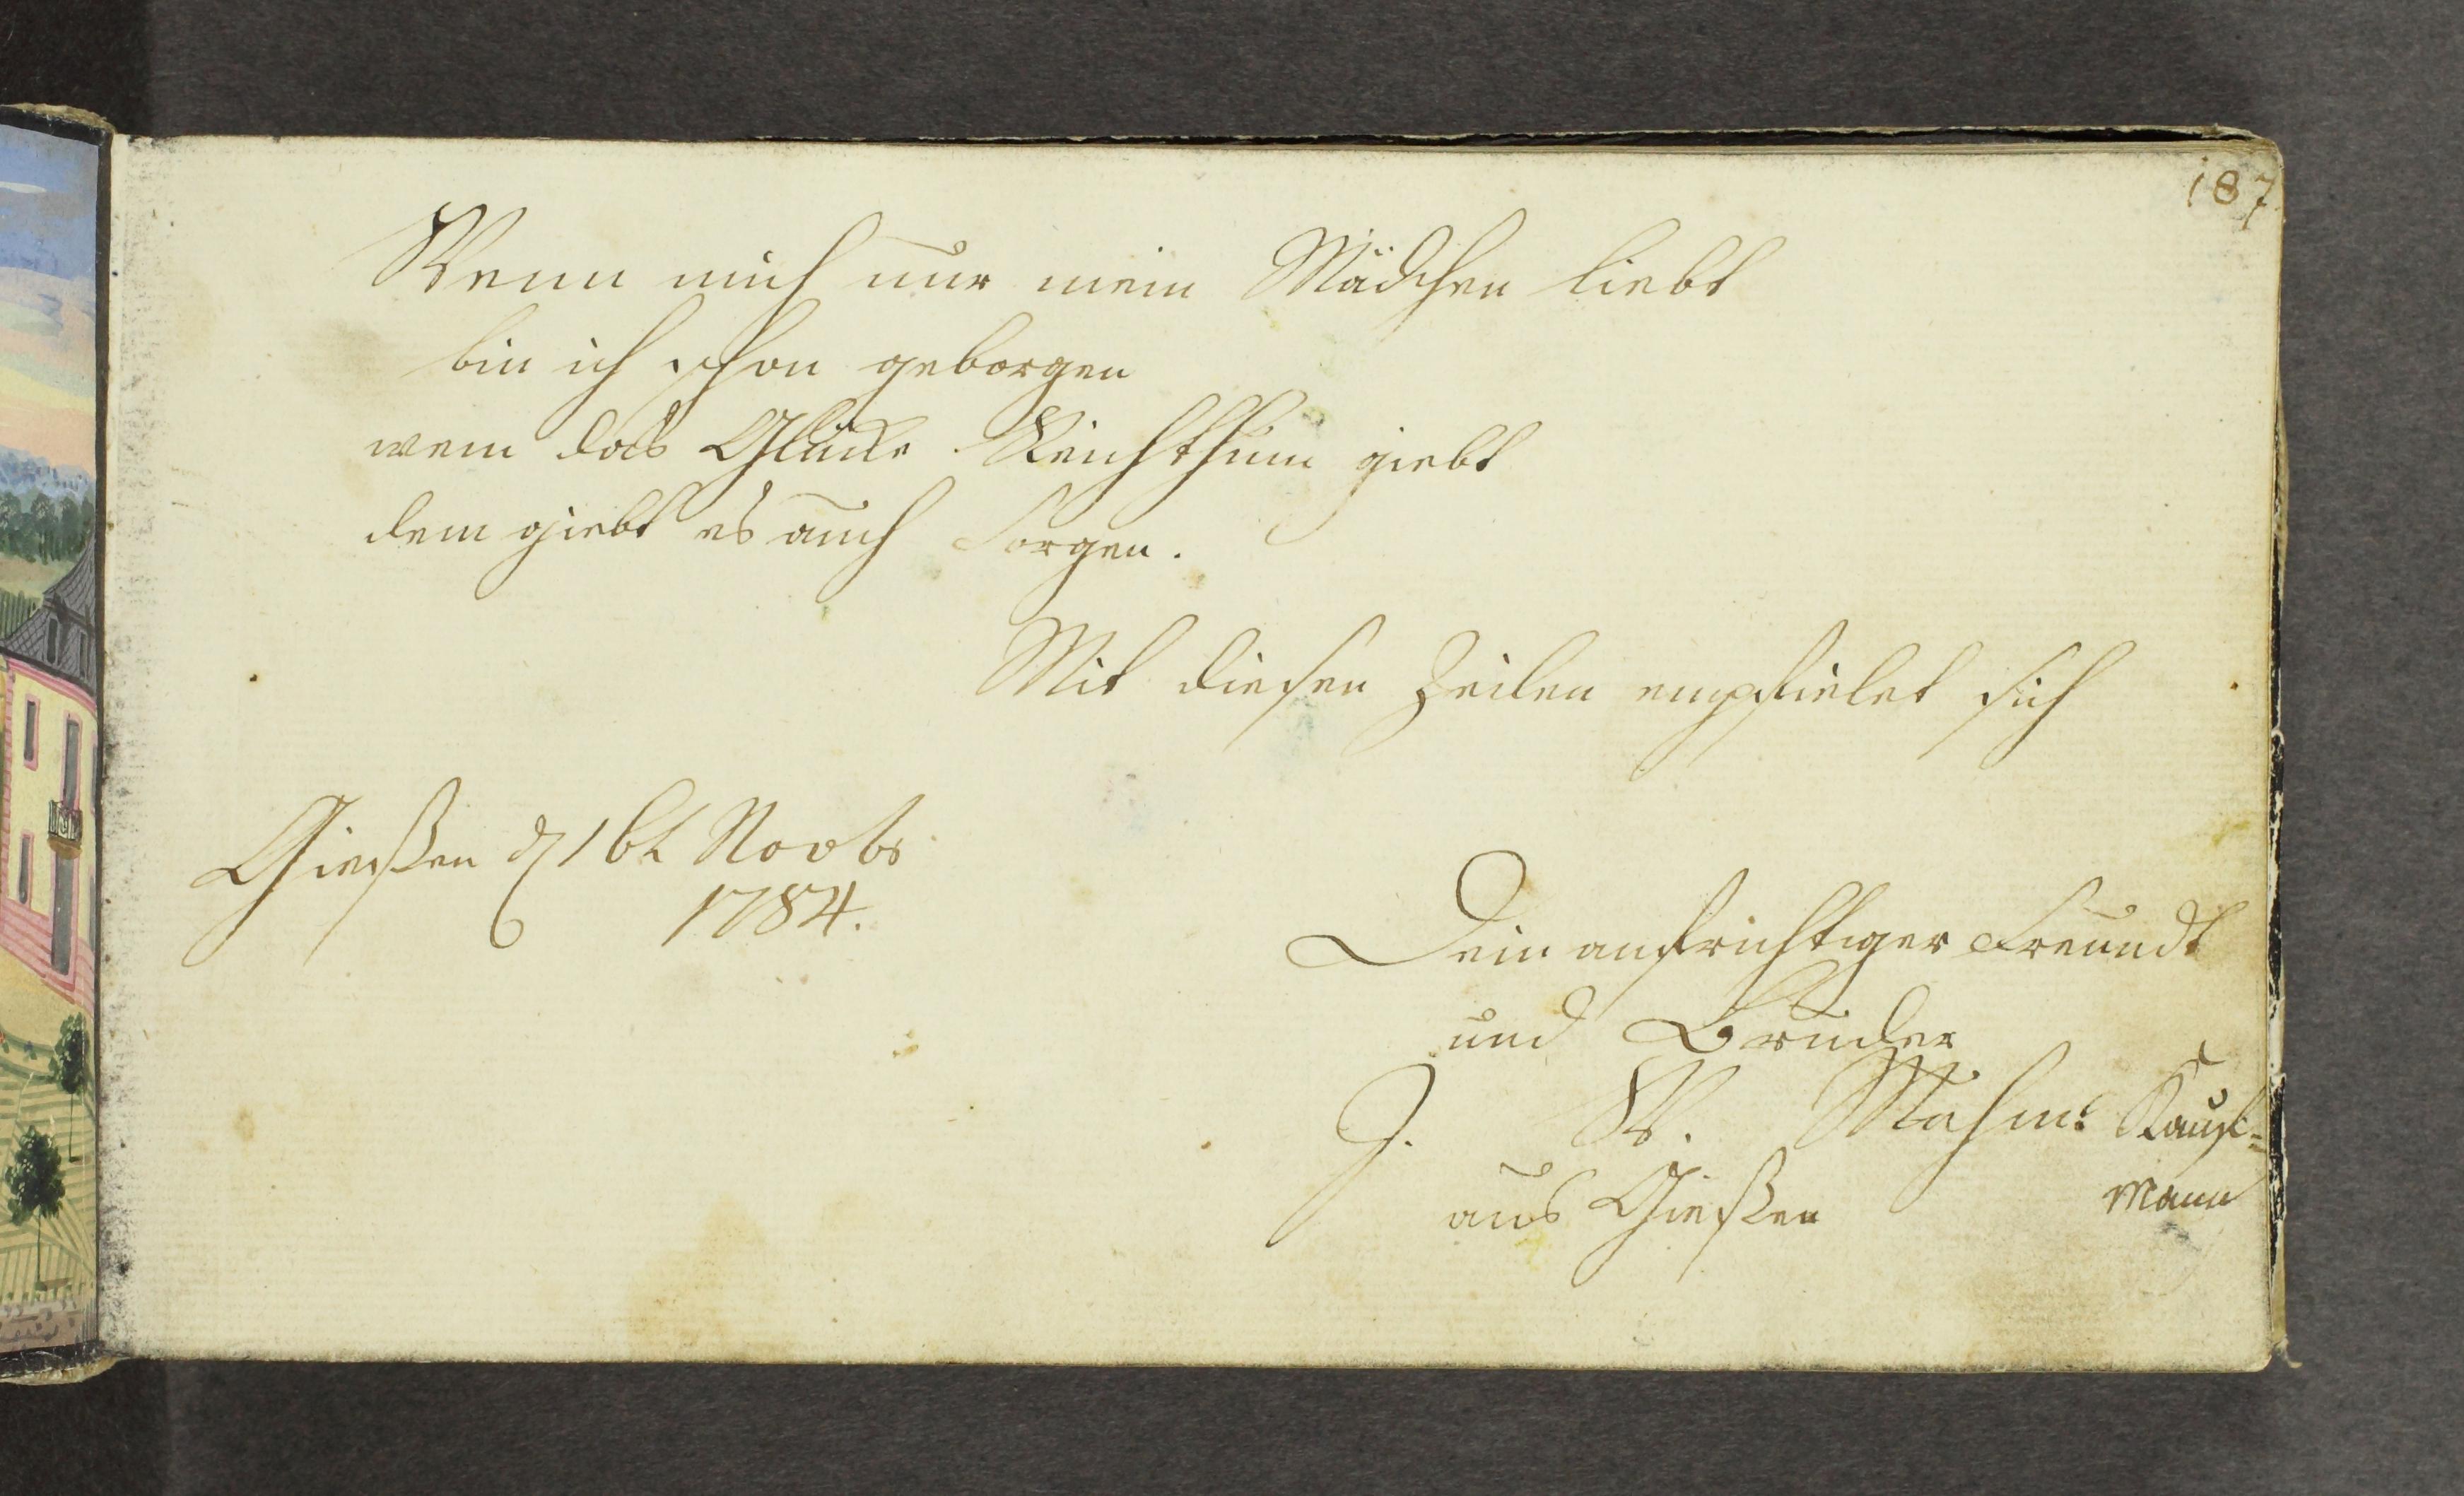 187
Wenn mich nur mein Mädchen liebt
bin ich schon geborgen
wem das Glücke Reichthum giebt
dem giebt es auch Sorgen.
Mit diesen Zeilen empfielet sich
Giessen d 16t Novbr
1784.
Dein aufrichtiger Freundt
und Bruder
J. W. Kauf=
mann
aus Giessen